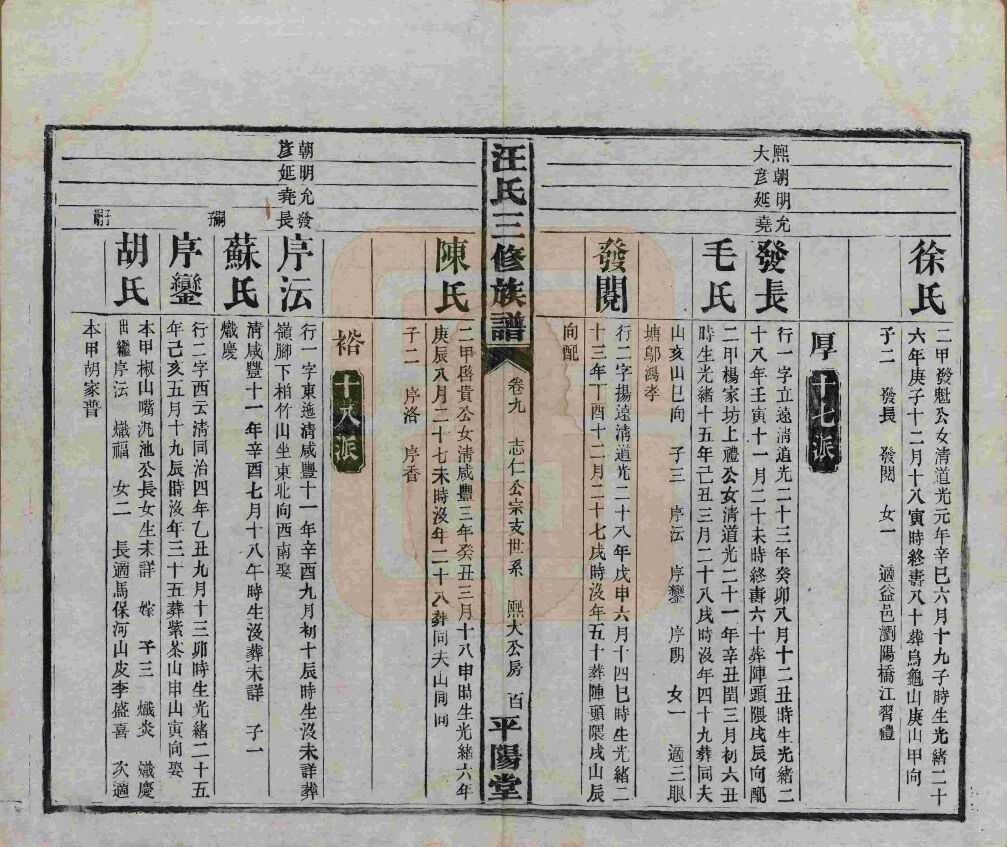 徐氏
二甲發魁公女清道光元年辛巳六月十九子時生光緒二十
六年庚子十二月十八寅時終壽八十葬烏龜山庚山甲向
子二　發長　發閱　女一　適益邑瀏陽橋江習禮
厚十七派
熙朝明允
大彦延堯
發長
行一字立遠清道光二十三年癸卯八月十二丑時生光緒二
十八年壬寅十一月二十未時終壽六十葬陣頭隈戌辰向配
毛氏
二甲楊家坊上禮公女清道光二十一年辛丑閏三月初六丑
時生光緒十五年己丑三月二十八戌時沒年四十九葬同夫
山亥山巳向　子三　序沄　序鑾　序朗　女一　適三眼
塘鄔鴻孝
發閱
行二字揚遠清道光二十八年戊申六月十四巳時生光緒二
十三年丁酉十二月二十七戌時沒年五十葬陣頭隈戌山辰
向配
汪氏三修族譜
卷九　志仁公宗支世系　熙大公房　百
平陽堂
陳氏
二甲啓貴公女清咸豐三年癸丑三月十八申時生光緒六年
庚辰八月二十七未時沒年二十八葬同夫山同向
子二　序洛　序香
裕十八派
朝明允發
彦延堯長
序沄
行一字東迤清咸豐十一年辛酉九月初十辰時生沒未詳葬
嶺腳下柏竹山坐東北向西南娶
嗣子
蘇氏
清咸豐十一年辛酉七月十八午時生沒葬未詳　子一
熾慶
序鑾
行二字西云清同治四年乙丑九月十三卯時生光緒二十五
年己亥五月十九辰時沒年三十五葬紫茶山申山寅向娶
胡氏
本甲椒山嘴汎池公長女生未詳　嫁　子三　熾炎　熾慶
出繼序沄　熾福　女二　長適馬保河山皮李盛喜　次適
本甲胡家普